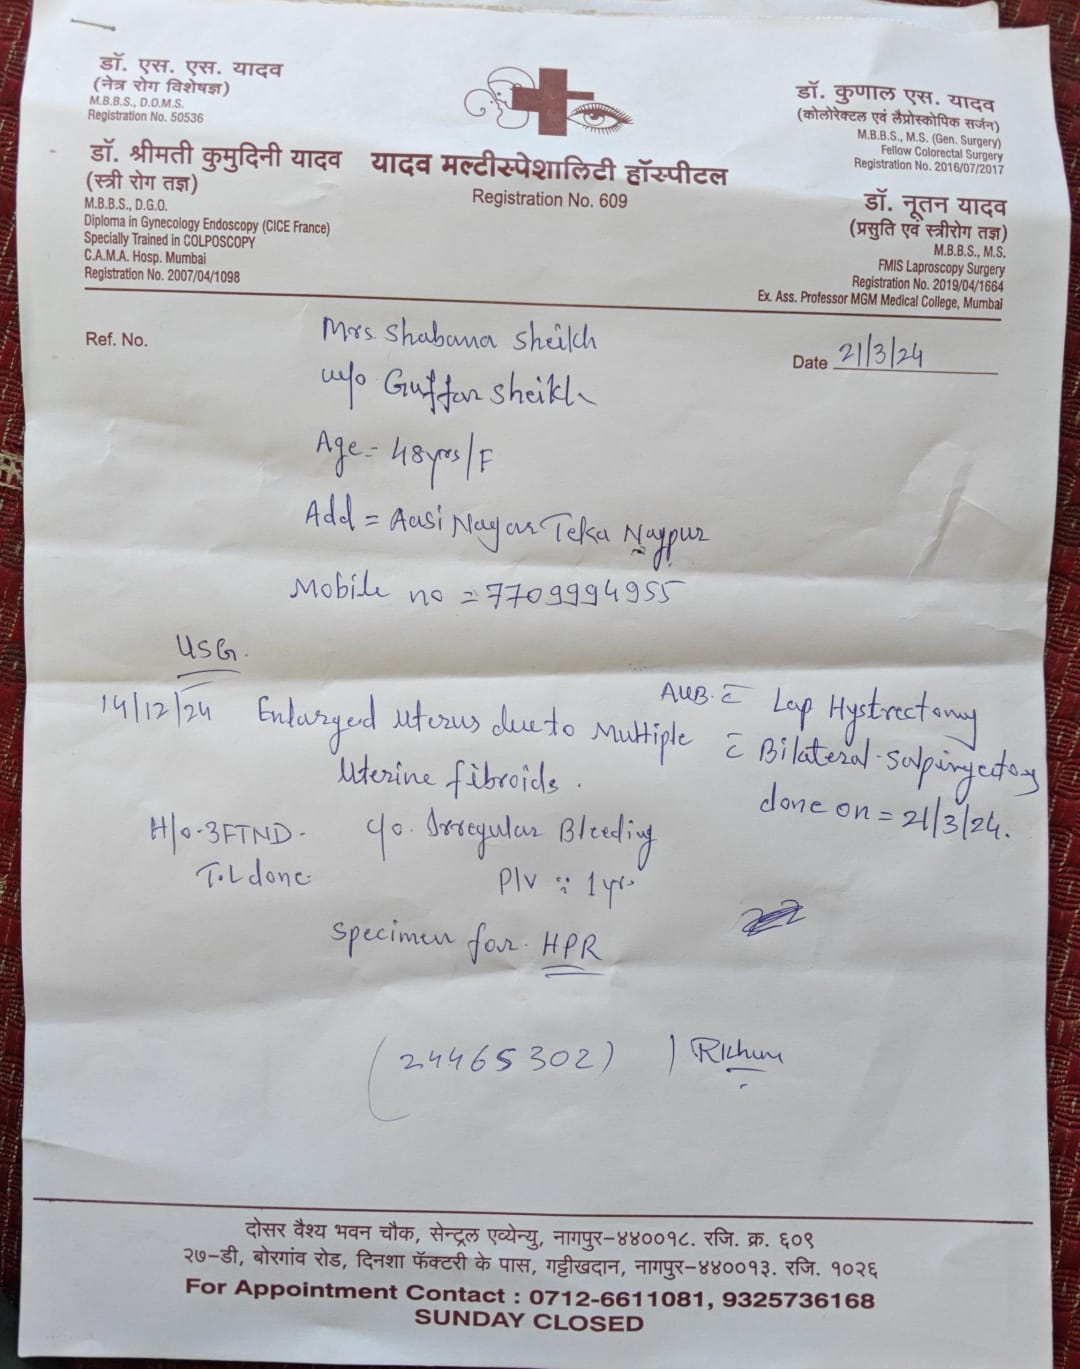 डॉ. एस. एस. यादव
(नेत्र रोग विशेषज्ञ)
M.B.B.S., D.O.M.S.
Registration No. 50536
डॉ. श्रीमती कुमुदिनी यादव
(स्त्री रोग तज्ञ)
M.B.B.S., D.G.O.
Diploma in Gynecology Endoscopy (CICE France)
Specially Trained in COLPOSCOPY
C.A.M.A. Hosp. Mumbai
Registration No. 2007/04/1098
यादव मल्टीस्पेशालिटी हॉस्पीटल
Registration No. 609
डॉ. कुणाल एस. यादव
(कोलोरेक्टल एवं लॅप्रोस्कोपिक सर्जन)
M.B.B.S., M.S. (Gen. Surgery)
Fellow Colorectal Surgery
Registration No. 2016/07/2017
डॉ. नूतन यादव
(प्रसुति एवं स्त्रीरोग तज्ञ)
M.B.B.S., M.S.
FMIS Laproscopy Surgery
Registration No. 2019/04/1664
Ex. Ass. Professor MGM Medical College, Mumbai
Ref. No.
Date 21/3/24
Mrs. Shabana Sheikh
w/o Guffar Sheikh
Age = 48yrs/F
Add = Aasi Nagar Teka Nagpur
Mobile no = 7709994955
USG.
14/12/24 Enlarged Uterus due to Multiple
Uterine fibroids.
AUB. c̄ Lap Hystrectomy
c̄ Bilateral-Salpingectomy
done on = 21/3/24.
H/o-3FTND-
T.L done
c/o. Irregular Bleeding
P/V :: 1 yr.
Specimen for. HPR
(24465302)
दोसर वैश्य भवन चौक, सेन्ट्रल एव्येन्यु, नागपुर-४४००१८. रजि. क्र. ६०९
२७-डी, बोरगांव रोड, दिनशा फॅक्टरी के पास, गट्टीखदान, नागपुर-४४००१३. रजि. १०२६
For Appointment Contact : 0712-6611081, 9325736168
SUNDAY CLOSED